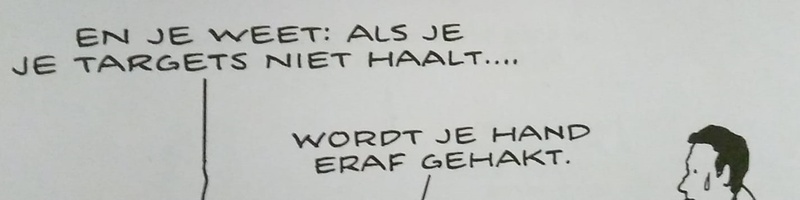 EN JE WEET: ALS JE
JE TARGETS NIET HAALT....
WORDT JE HAND
ERAF GEHAKT.